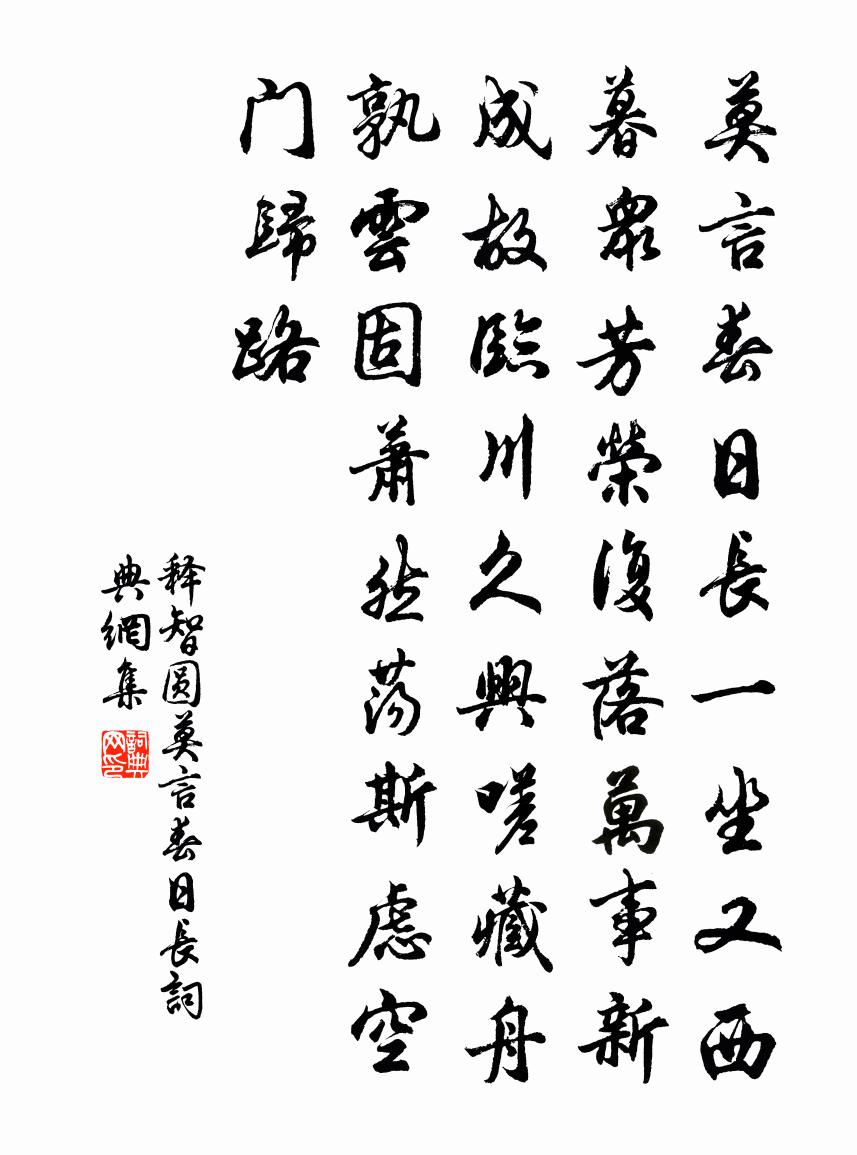 莫言春日長一坐又西
暮眾芳榮復落萬事新
成故臨川久興嗟藏舟
孰雲固蕭然蕩斯慮空
門歸路
释智圆莫言春日長詞
典網集
詞典
网印